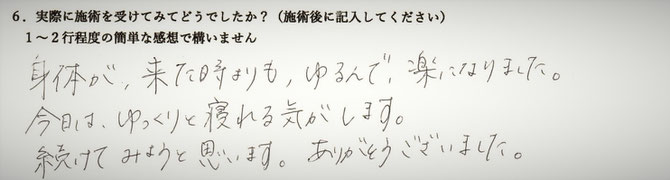 6．実際に施術を受けてみてどうでしたか？（施術後に記入してください）
1～2行程度の簡単な感想で構いません
身体が、来た時よりも、ゆるんで、楽になりました。
今日は、ゆっくりと寝れる気がします。
続けてみようと思います。ありがとうございました。